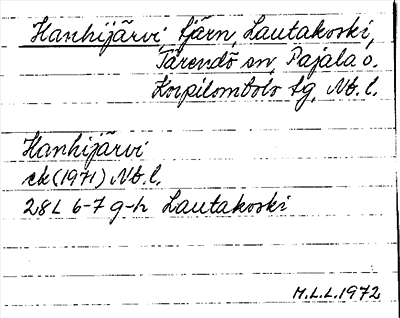 Hanhijärvi tjärn, Lautakoski,
Tärendö sn, Pajala o.
Korpilombolo tg, Nb. l.
Hanhijärvi
ek (1971) Nb. l.
28L 6-7 g-h Lautakoski
M.L.L. 1972